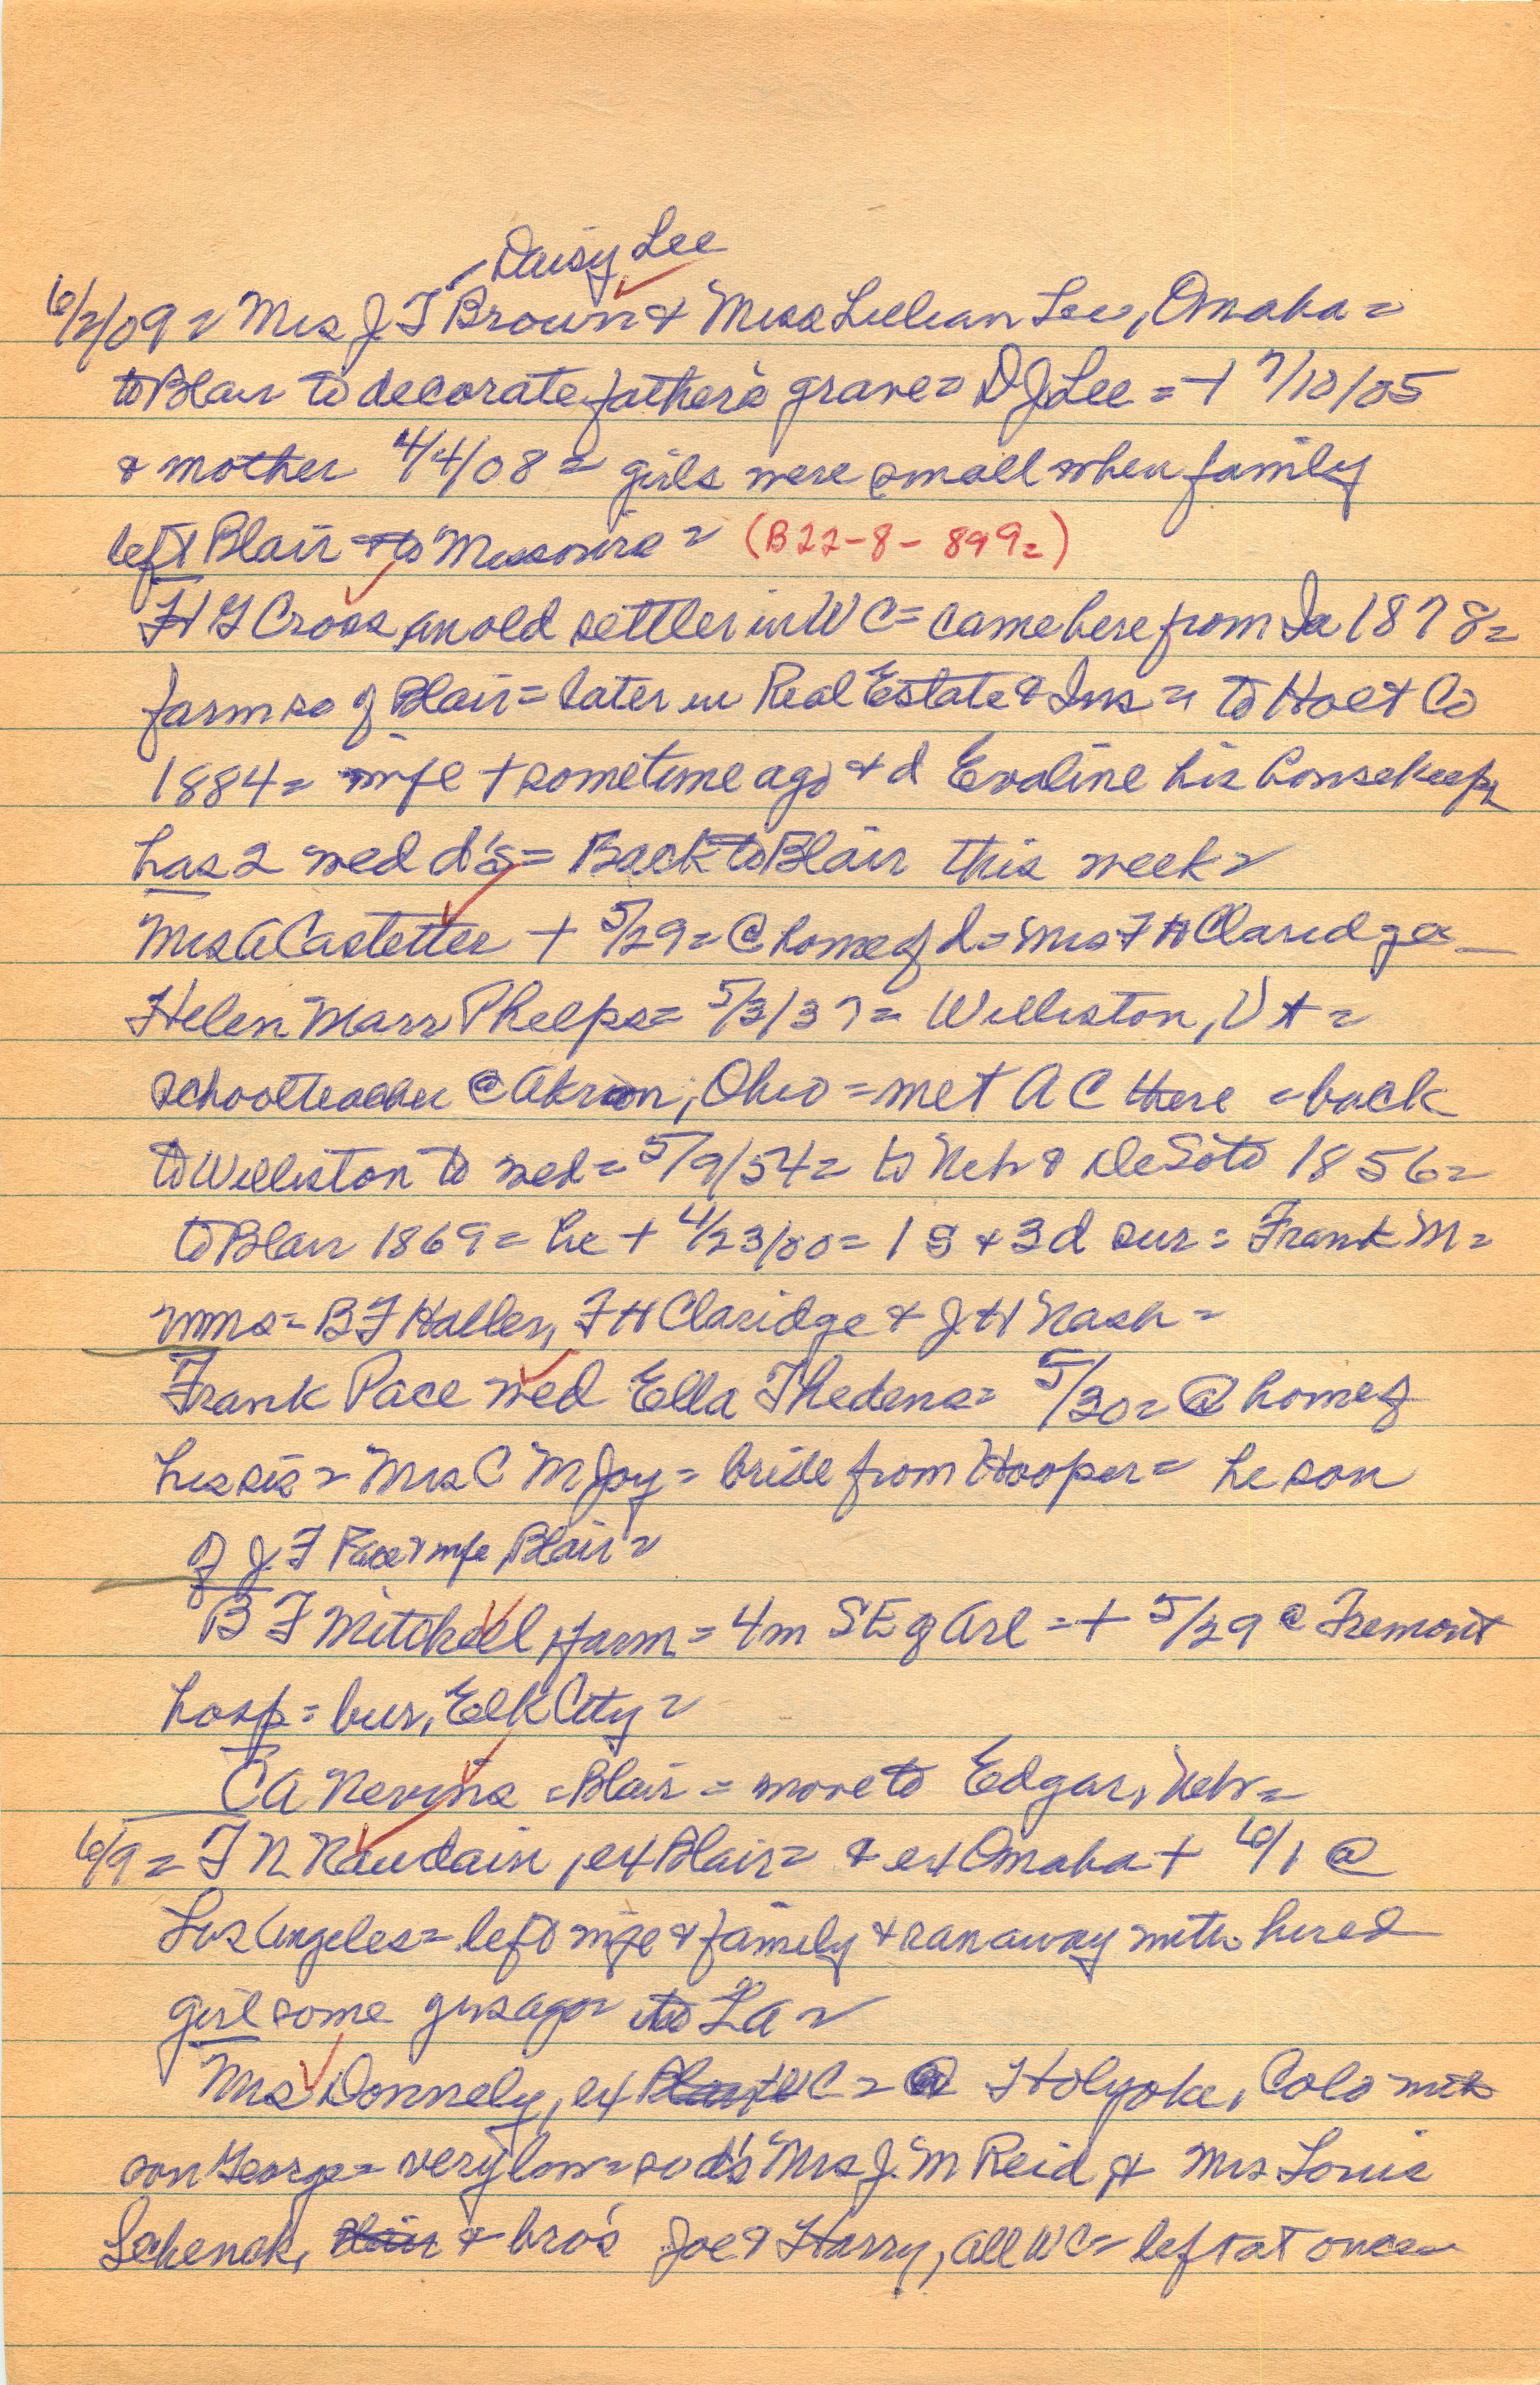 Daisy Lee
6/2/09 = Mrs J F Brown & Miss Lillian Lee, Omaha =
to Blair to decorate father's grave = D J Lee = + 7/10/05
& mother 4/4/08 = girls were small when family
left Blair to Missouri = (B22-8-899=)
H G Cross, an old settler in WC = came here from Ia 1878 =
farm so of Blair = later in Real Estate & Ins = to Holt Co
1884 = wife + sometime ago & d Evaline his housekeeper
has 2 wed d's = Back to Blair this week =
Mrs A Castetter + 5/29 = @ home of d = Mrs F H Claridge =
Helen Marr Phelps = 5/3/37 = Williston, Vt =
schoolteacher @ Akron, Ohio = met A C there = back
to Williston to wed = 5/9/54 = to Neb & DeSoto 1856 =
to Blair 1869 = he + 4/23/00 = 1 s & 3 d sur = Frank M =
mms = B F Haller, F H Claridge & J H Nash =
Frank Pace wed Ella Thedens = 5/30 = @ home of
his sis = Mrs C M Joy = bride from Hooper = he son
of J F Pace & wife, Blair =
B F Mitchell, farm = 4m SE of Arl = + 5/29 @ Fremont
hosp = bur, Elk City =
C A Nevins = Blair = move to Edgar, Neb =
6/9 = F N Naudain, ex Blair = & ex Omaha + 6/1 @
Los Angeles = left wife & family & ran away with hired
girl some yrs ago = to La =
Mrs Donnely, ex WC = @ Holyoke, Colo with
son George = very low = so d's Mrs J. M Reid & Mrs Louis
Schenck, & bro's Joe & Harry, all WC = left at once =